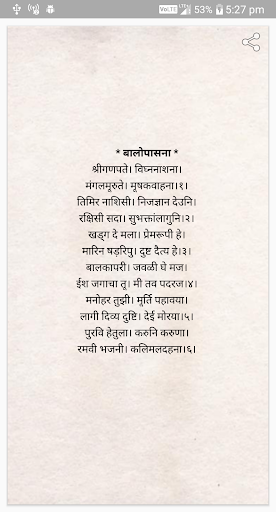 VoLTE 53% 5:27 pm
* बालोपासना *
श्रीगणपते। विघ्ननाशना।
मंगलमूरुते। मूषकवाहना।१।
तिमिर नाशिसी। निजज्ञान देउनि।
रक्षिसी सदा। सुभक्तांलागुनि।२।
खड्ग दे मला। प्रेमरूपी हे।
मारिन षड्रिपु। दुष्ट दैत्य हे।३।
बालकापरी। जवळी घे मज।
ईश जगाचा तू। मी तव पदरज।४।
मनोहर तुझी। मूर्ति पहावया।
लागी दिव्य दुष्टि। देई मोरया।५।
पुरवि हेतुला। करुनि करुणा।
रमवी भजनी। कलिमलदहना।६।